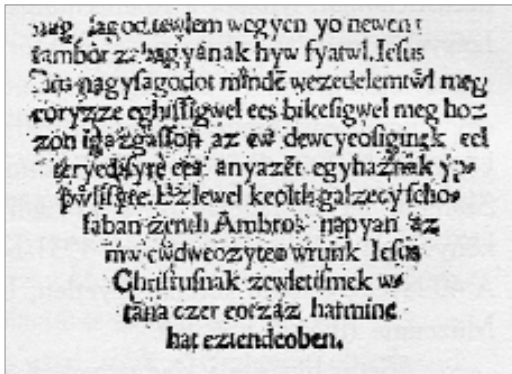 nag sagod tewlem wegyen yo newen t
tambor zabagyanak hyw fyatwl. Iesus
nagysagodot mindē wezedelemtwl meg
eoryzze eghissigwel ees bikesigwel meg hoz
zon igazgasson az ew dewcyeosiginek eel
teryedisyre ees anyazēt egyhaznak yp-
pwlisire. Ez lewel keolth galzecy ischo-
laban zenth Ambros napyan az
mw wdweozyteo wrunk Iesus
Christusnak zewletisinek w-
tana ezer eorzaz harmine
hat eztendeoben.